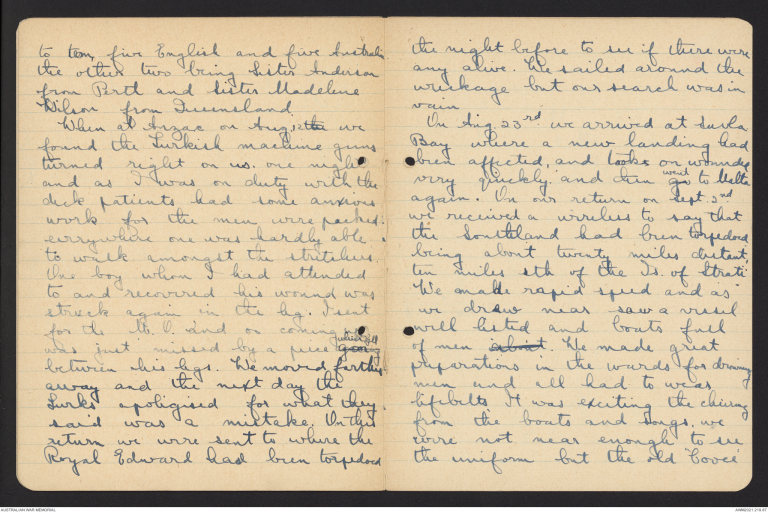 to ten, five English and five Australia
the other two being Sister Anderson
from Perth and Sister Madeline
Wilson from Queensland.
When at Anzac on Aug we
found the Turkish machine guns
turned right on us. one night
and as I was on duty with the
deck patients had some anxious
work for the men were packed
everywhere one was hardly able
to walk amongst the stretchers.
One boy whom I had attended
to and recovered his wound was
struck again in the leg. I sent
for the M.O. and on coming
was just missed by a piece
between his legs. We moved farther
away and the next day the
Turks apoligised for what they
said was a mistake. On this
return we were sent to where the
Royal Edward had been torpedoed
the night before to see if there were
any alive. We sailed around the
wreckage but our search was in
vain.
On Aug 23rd we arrived at Suvla
Bay where a new landing had
been affected, and took on wounded
very quickly and then went to Malta
again. On our return on Sept. 2nd
we received a wireless to say that
the Southland had been torpedoed
being about twenty miles distant,
ten miles sth of the Is. of Strati
We made rapid speed and as
we drew near saw a vessil
well listed and boats full
of men about. We made great
preparations in the wards for drowning
men and all had to wear
lifebelts It was exciting the cheering
from the boats and songs. we
were not near enough to see
the uniform but the old 'Covee'
AUSTRALIAN WAR MEMORIAL